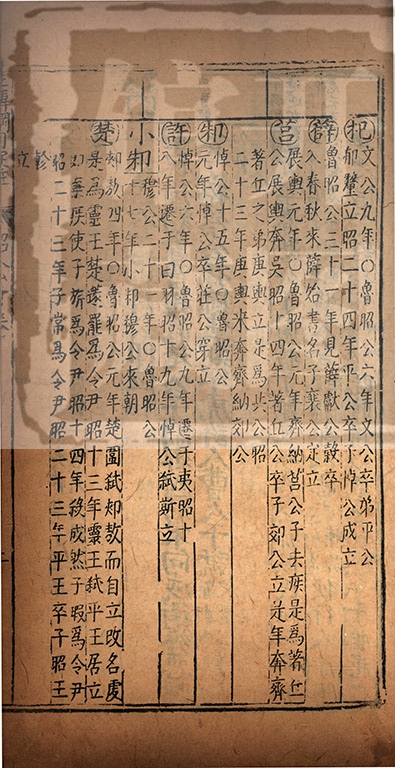 杞文公九年○魯昭公六年文公卒弟平公
郁釐立昭二十四年平公卒子悼公成立
薛魯昭公三十一年見薛獻公穀卒
入春秋來薛始書名子襄公定立
莒展輿元年○魯昭公元年齊納莒公子去疾是為著丘
公展輿奔吳昭十四年著丘公卒子郊公立是年奔齊
著丘之弟庚輿立是為共公昭
二十三年庚輿來奔齊納郊公
邾悼公十五年○魯昭公
元年悼公卒莊公穿立
許悼公六年○魯昭公九年遷于夷昭十
八年遷于白羽昭十九年悼公弒斯立
小邾穆公二十一年○魯昭公
十七年小邾穆公來朝
楚郟敖四年○魯昭公元年楚圍弒郟敖而自立改名虔
是為靈王楚薳罷為令尹昭十三年靈王弒平王居立
昭二十三年子常為令尹昭二十三年平王卒子昭王
軫立